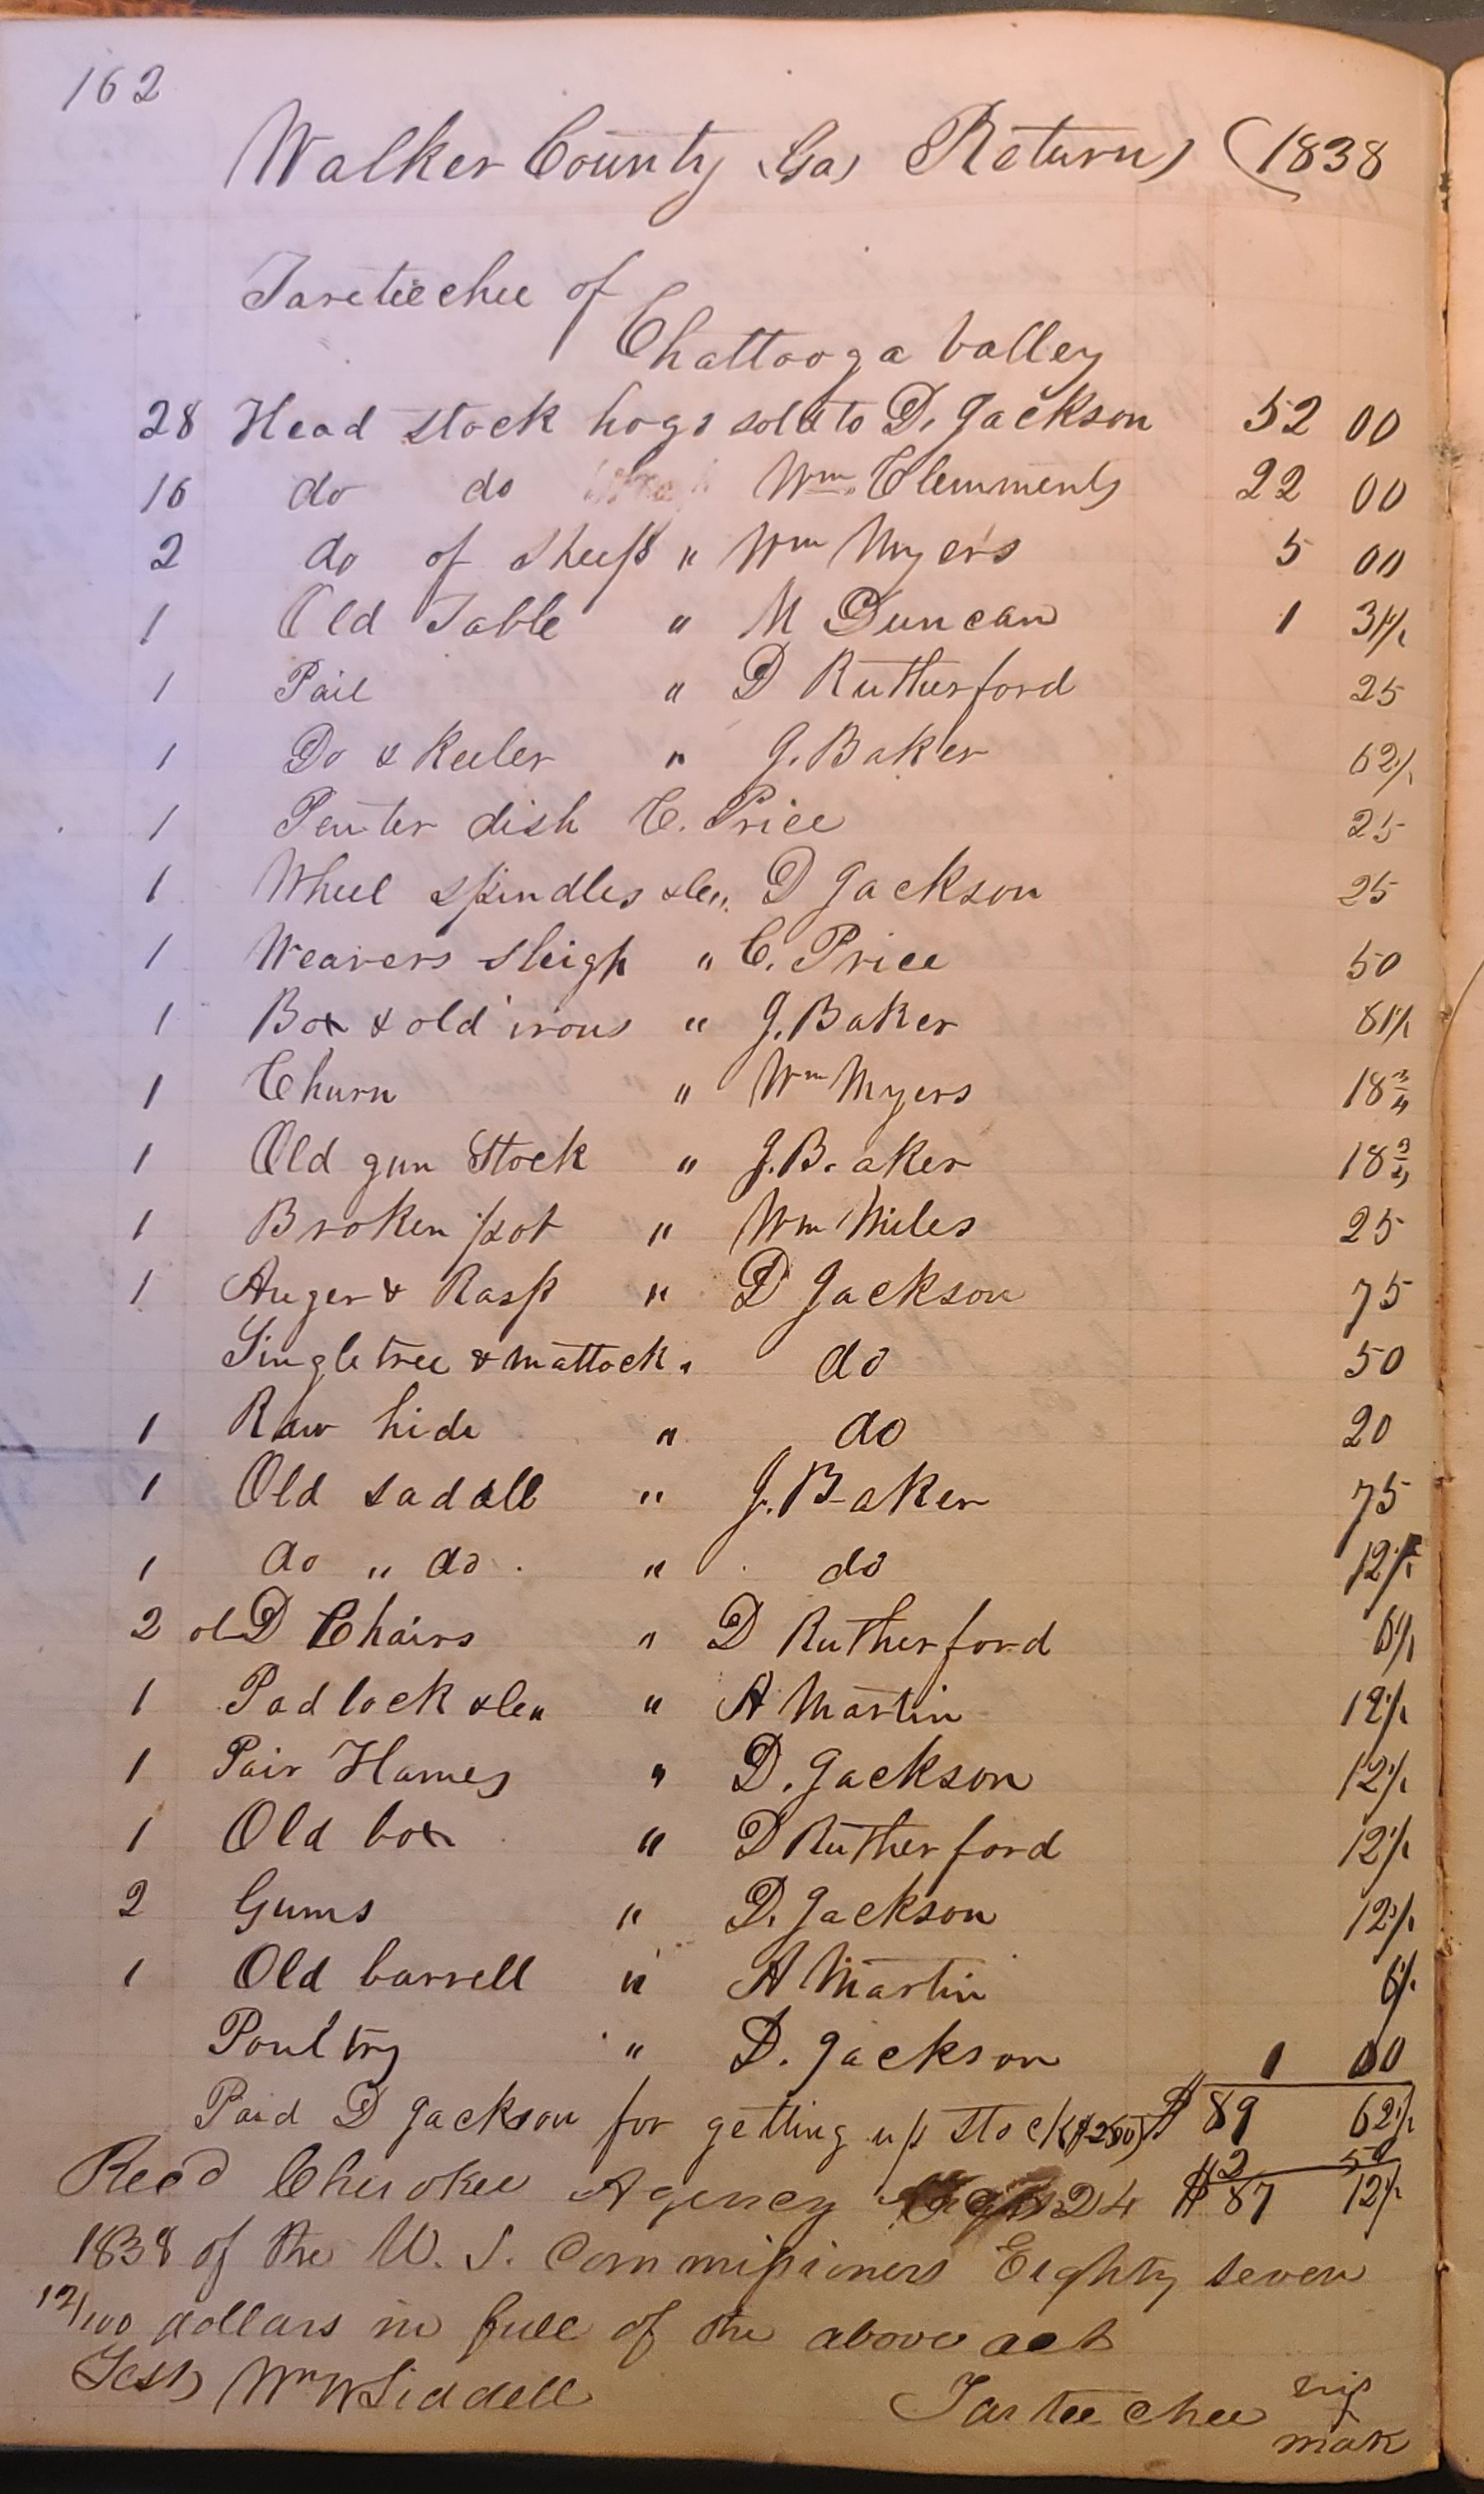 162
Walker County (Ga) Returns (1838
Tareteechee of
Chattooga valley
28 Head stock hogs sold to D. Jackson 52 00
16 do do Wm. Clemments 22 00
2 do of Sheep " Wm Myers 5 00
1 Old Table " M Duncan 1 31¼
1 Pail " D Rutherford 25
1 Do & Keeler " J. Baker 62½
1 Pewter dish C. Price 25
1 Wheel spindles &c " D Jackson 25
1 Weavers sleigh " C. Price 50
1 Box & old irons " J. Baker 81¼
1 Churn " Wm Myers 18¾
1 Old gun Stock " J. Baker 18¾
1 Broken pot " Wm Miles 25
1 Auger & Rasp " D Jackson 75
Singletree & mattock " do 50
1 Raw hide " do 20
1 Old sadall " J. Baker 75
1 do " do " do 12½
2 olD Chairs " D Rutherford 6¼
1 Pad lock &c " " A Martin 12½
1 Pair Hames " D. Jackson 12½
1 Old box " D Rutherford 12½
2 Gums " D. Jackson 12½
1 Old barrell " A Martin 6¼
Poultry " D. Jackson 1 00
Paid D Jackson for getting up stock ($2.50) $ 89 62½
2 50
Recd Cherokee Agency 24 $ 87 12½
1838 of the U. S. Commissioners Eighty seven
12/100 dollars in full of the above act
Test) Wm W Liddell
Tarteechee his
x
mark